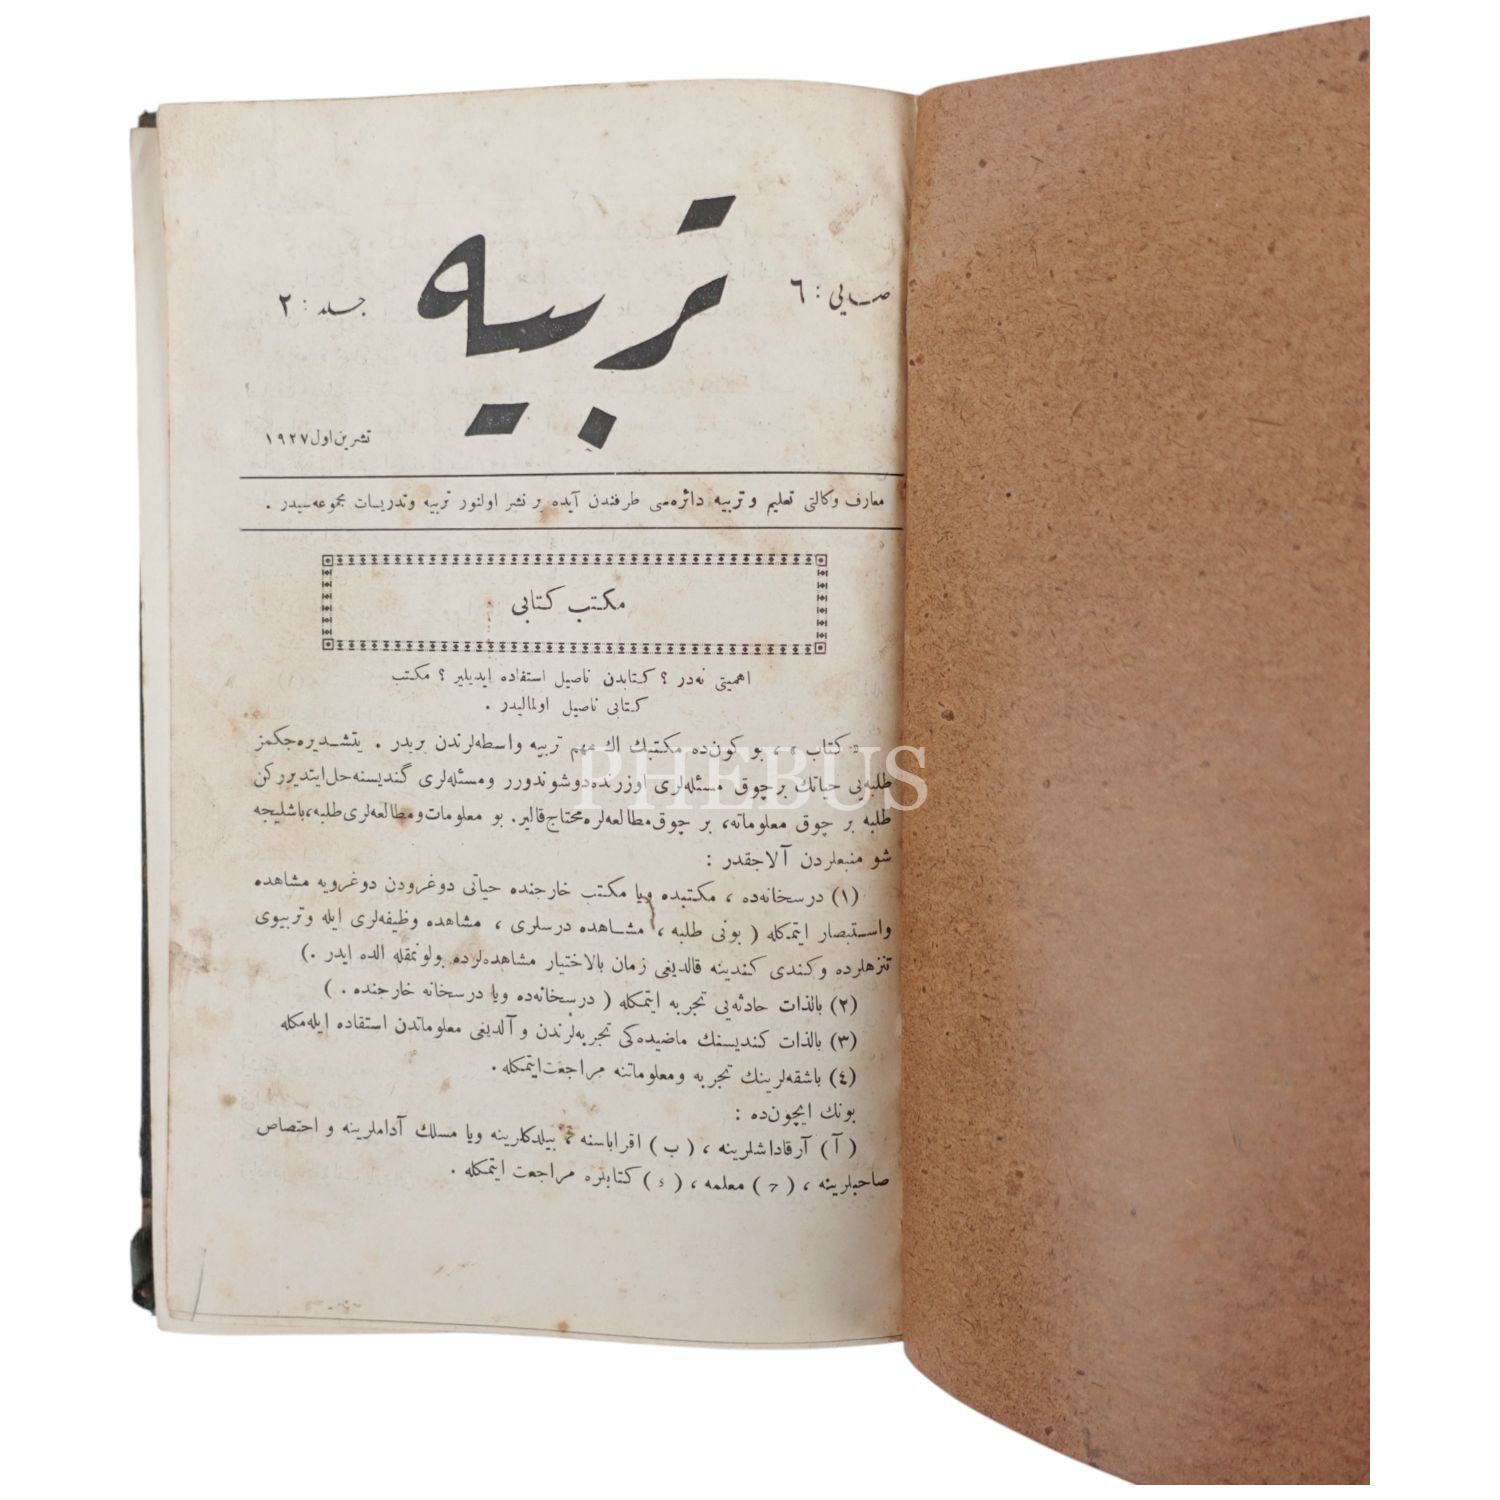 صایی : ٦
تربیه
جلد : ٢
تشرین اول ١٩٢٧
معارف وکالتی تعلیم و تربیه دائره‌سی طرفندن آیده بر نشر اولنور تربیه وتدریسات مجموعه‌سیدر .
مکتب کتابی
اهمیتی نه‌در ؟ کتابدن ناصیل استفاده ایدیلیر ؟ مکتب
کتابی ناصیل اولمالیدر .
« کتاب » ، بو کون‌ده مکتبك اك مهم تربیه واسطه‌لرندن بریدر . یتشدیره‌جکمز
طلبه‌یی حیاتك بر چوق مسئله‌لری اوزرنده دوشوندورر ومسئله‌لری گندیسنه حل ایتدیررکن
طلبه بر چوق معلوماته، بر چوق مطالعه‌لره محتاج قالیر. بو معلومات ومطالعه‌لری طلبه، باشلیجه
شو منبعلردن آلاجقدر :
(١) درسخانه‌ده ، مکتبده ویا مکتب خارجنده حیاتی دوغرودن دوغرویه مشاهده
واستبصار ایتمکله ( بونی طلبه ، مشاهده درسلری ، مشاهده وظیفه‌لری ایله وتربیوی
تنزهلرده وکندی کندینه قالدیغی زمان بالاختیار مشاهده‌لرده بولونمقله الده ایدر .)
(٢) بالذات حادثه‌یی تجربه ایتمکله ( درسخانه‌ده ویا درسخانه خارجنده . )
(٣) بالذات کندیسنك ماضیده‌کی تجربه‌لرندن و آلدیغی معلوماتدن استفاده ایله‌مکله
(٤) باشقه‌لرینك تجربه ومعلوماتنه مراجعت ایتمکله .
بونك ایچون‌ده :
( آ ) آرقاداشلرینه ، ( ب ) اقرباسنه ، بیلدکلرینه ویا مسلك آداملرینه و اختصاص
صاحبلرینه ، ( ج ) معلمه ، ( د ) کتابلره مراجعت ایتمکله .
PHEBUS